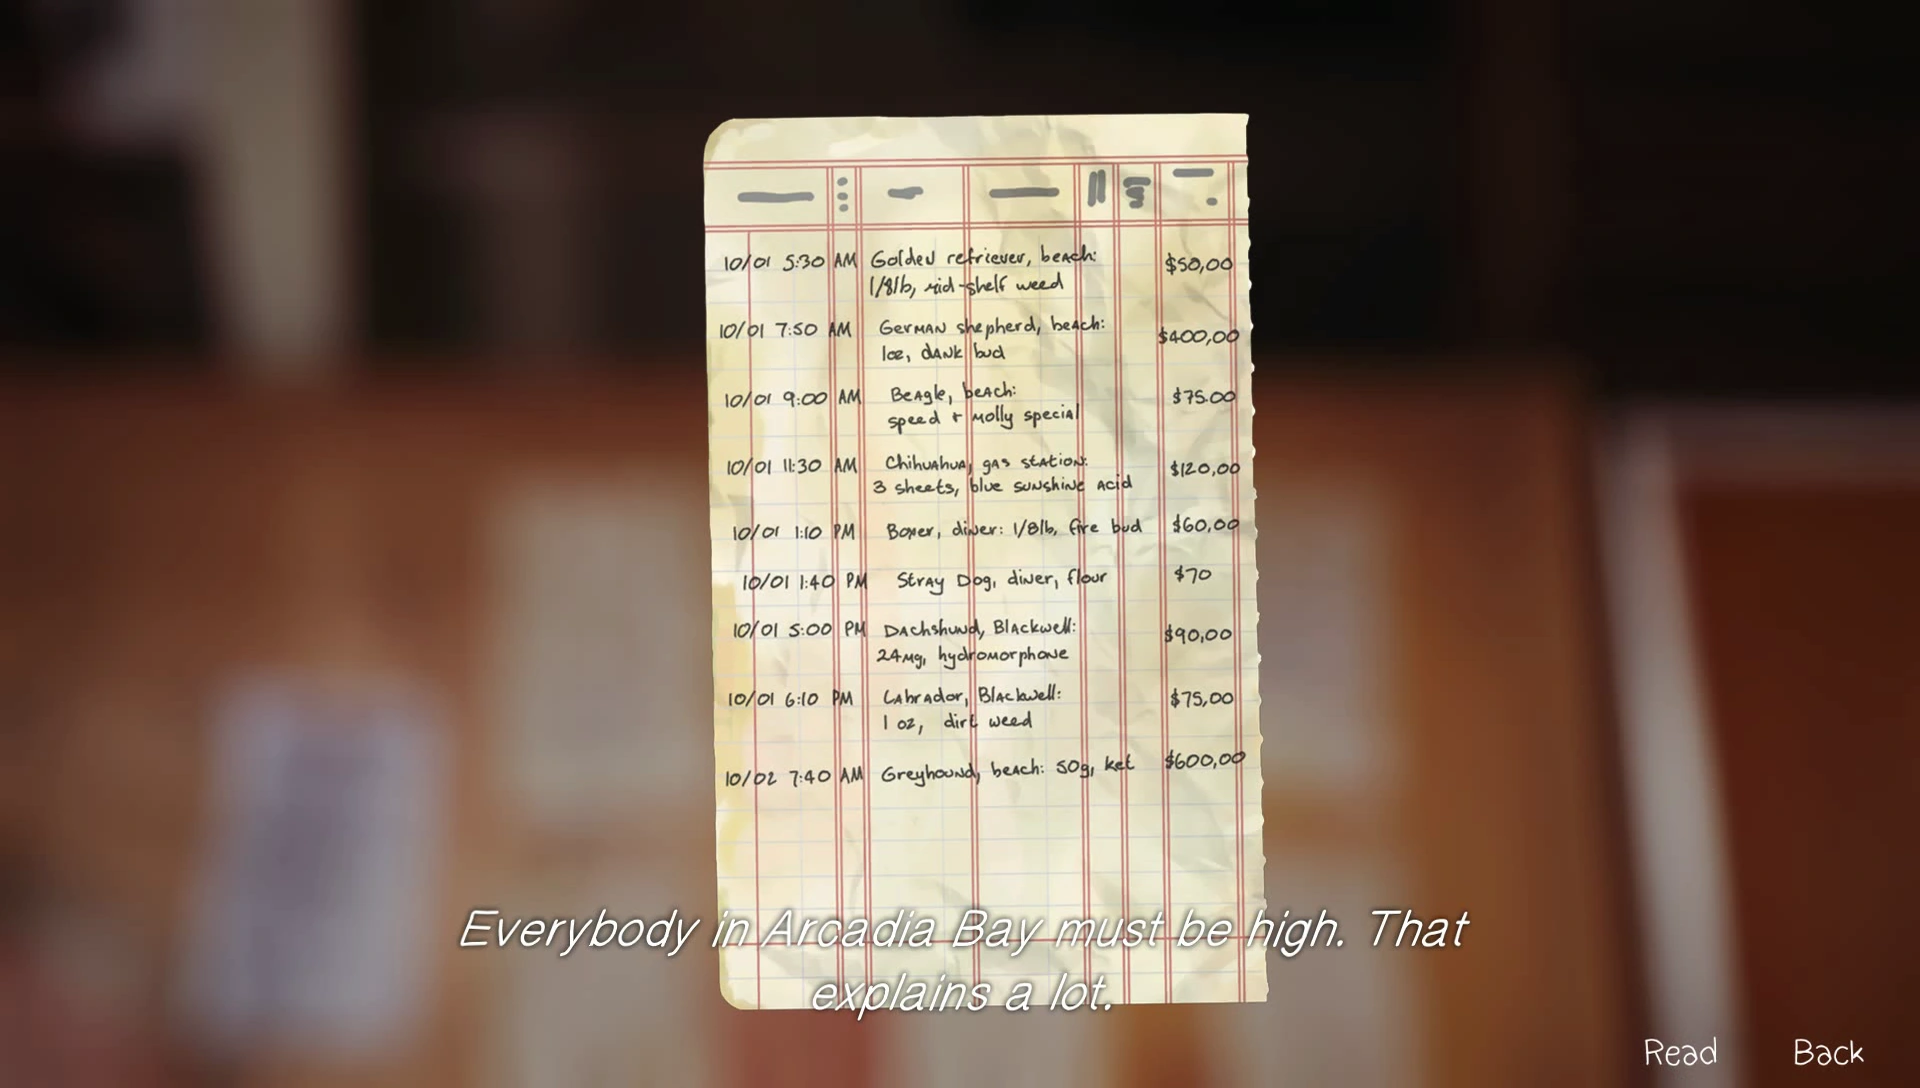 10/01 5:30 AM Golden retriever, beach: $50,00
1/8lb, mid-shelf weed
10/01 7:50 AM German shepherd, beach: $400,00
1oz, dank bud
10/01 9:00 AM Beagle, beach: $75.00
speed + Molly special
10/01 11:30 AM Chihuahua, gas station: $120,00
3 sheets, blue sunshine acid
10/01 1:10 PM Boxer, diner: 1/8lb, fire bud $60,00
10/01 1:40 PM Stray Dog, diner, flour $70
10/01 5:00 PM Dachshund, Blackwell: $90,00
24mg, hydromorphone
10/01 6:10 PM Labrador, Blackwell: $75,00
1 oz, dirt weed
10/02 7:40 AM Greyhound, beach: 50g, ket $600,00
Everybody in Arcadia Bay must be high. That
explains a lot.
Read Back